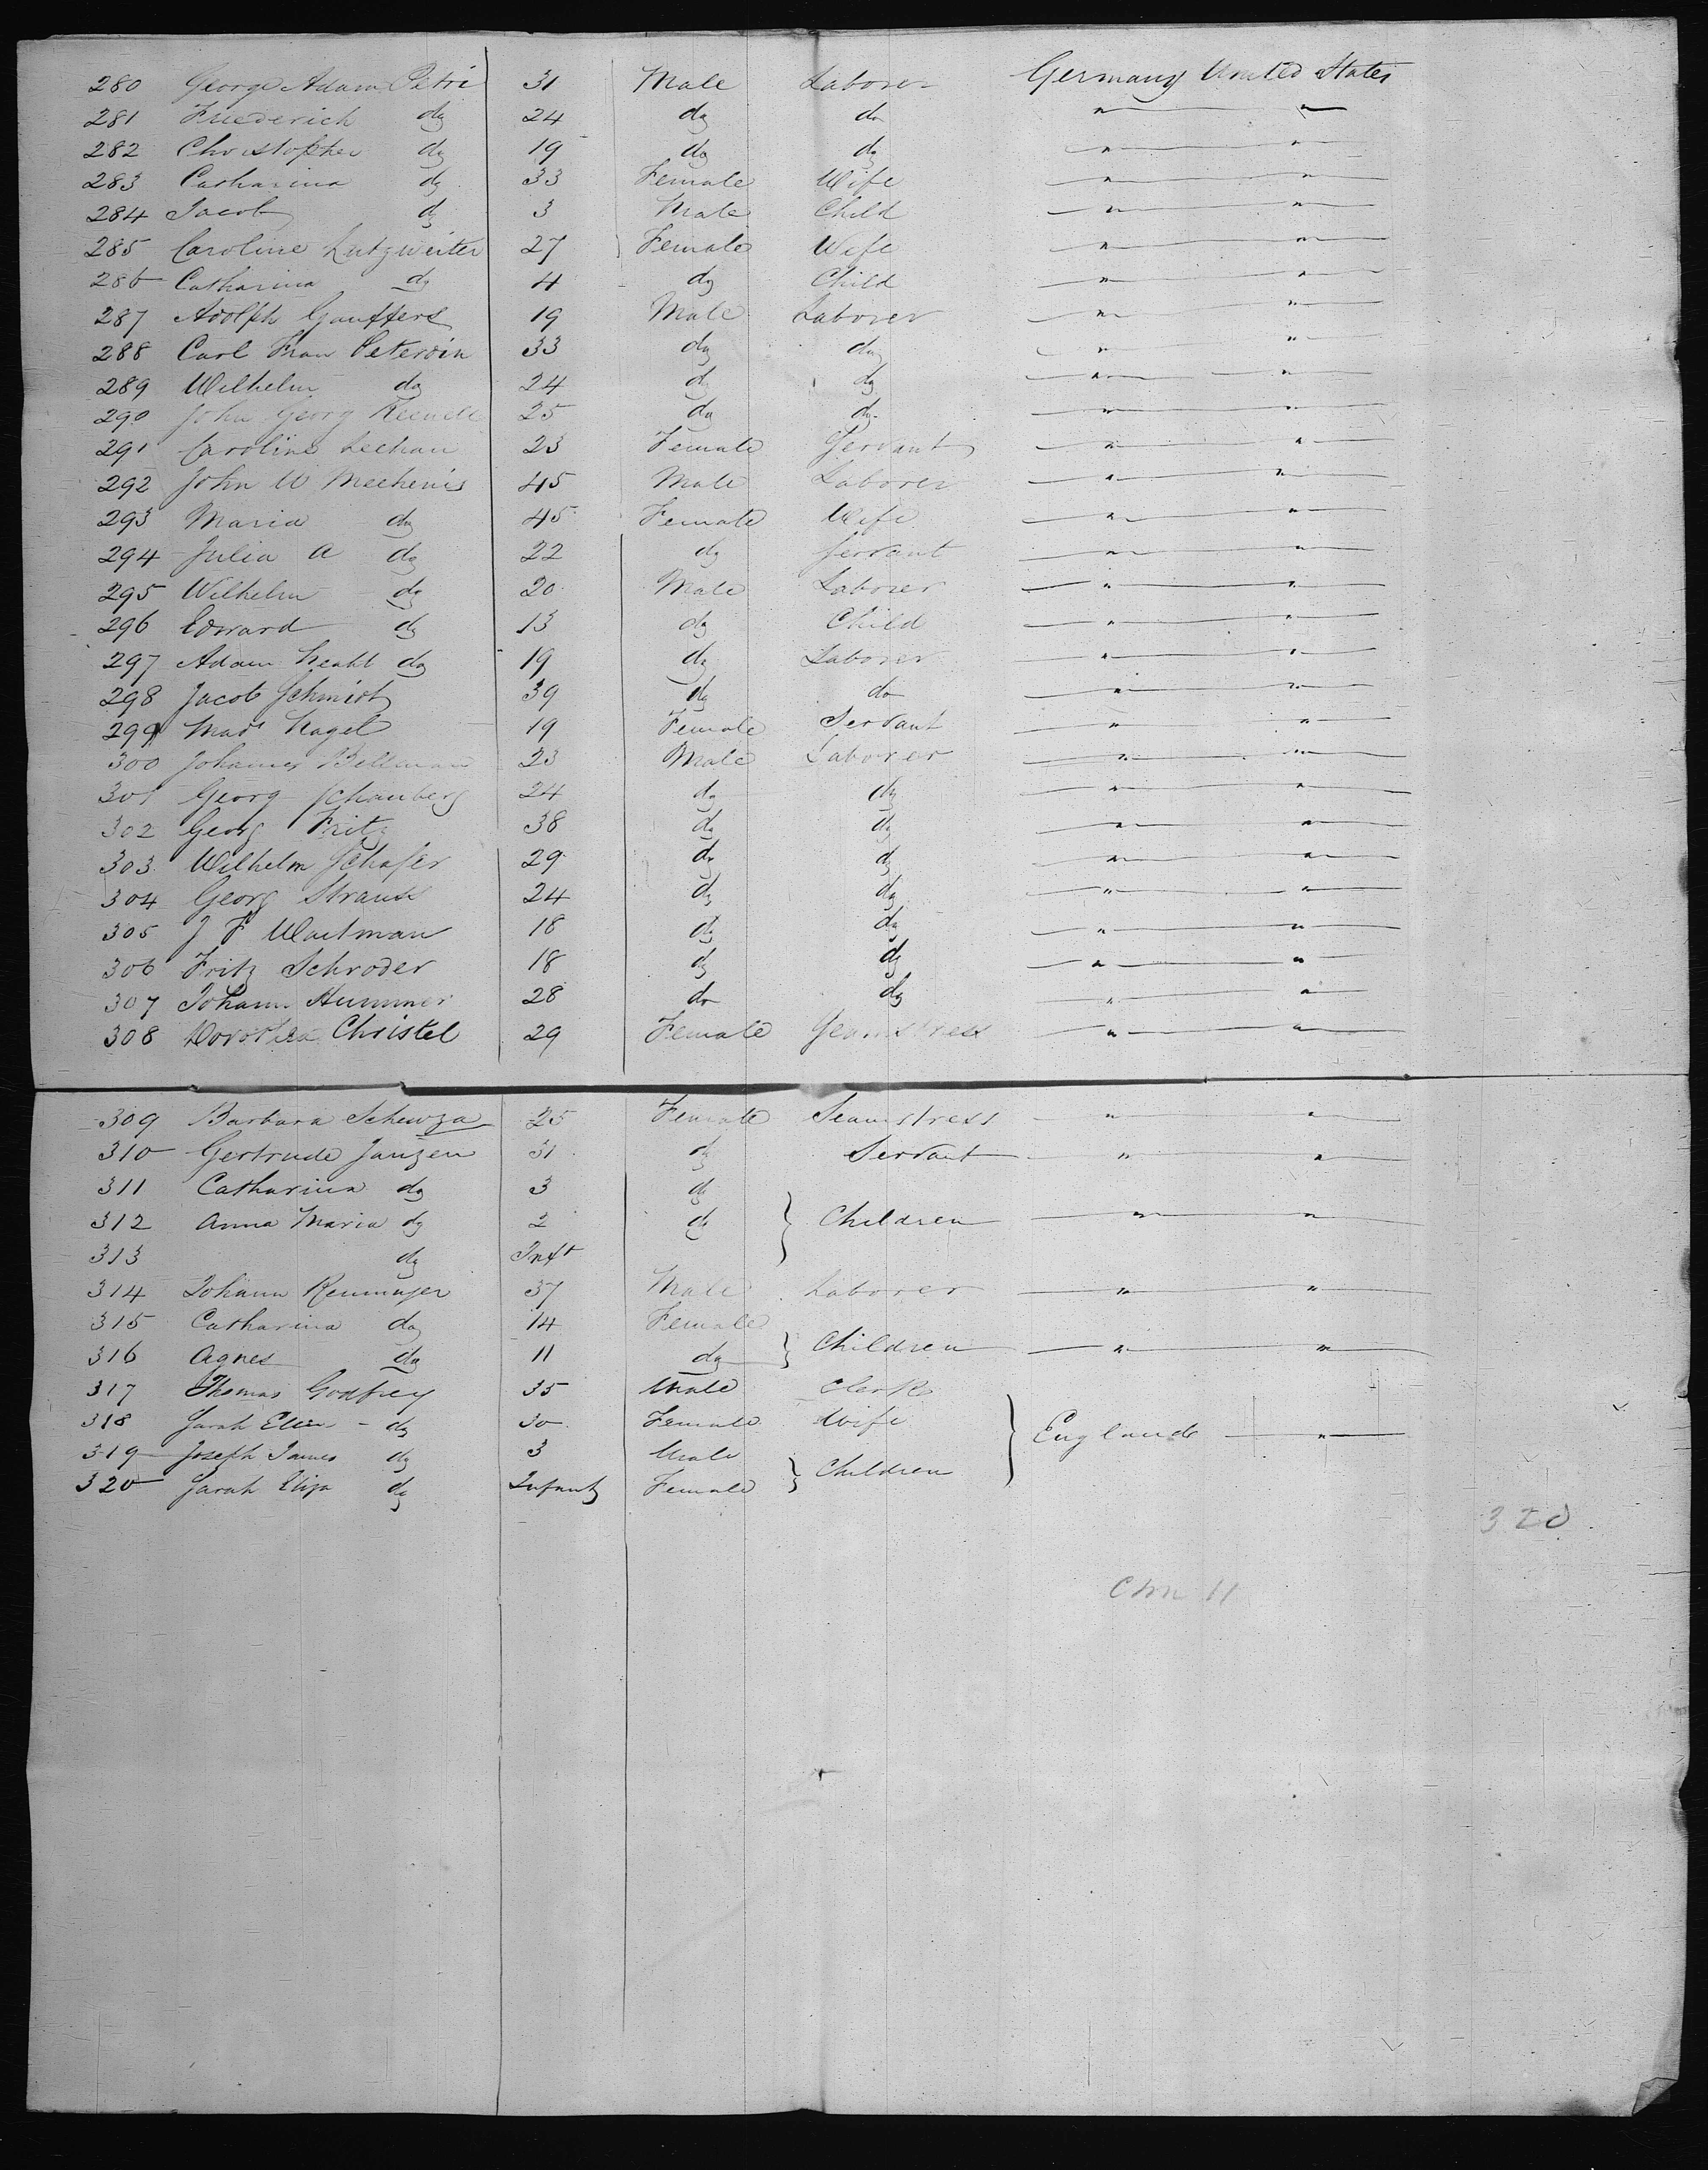 280 George Adam Petri 31 Male Laborer Germany United States
281 Friederich do 24 do do " "
282 Christopher do 19 do do " "
283 Catharina do 33 Female Wife " "
284 Jacob do 3 Male Child " "
285 Caroline Lutzweiter 27 Female Wife " "
286 Catharina do 4 do Child " "
287 Adolph 19 Male Laborer " "
288 Carl 33 do do " "
289 Wilhelm do 24 do do " "
290 John Georg 25 do do " "
291 Caroline 23 Female Servant " "
292 John W 45 Male Laborer " "
293 Maria do 45 Female Wife " "
294 Julia A do 22 do Servant " "
295 Wilhelm do 20 Male Laborer " "
296 Edward do 13 do Child " "
297 Adam do 19 do Laborer " "
298 Jacob Schmidt 39 do do " "
299 Nagel 19 Female Servant " "
300 Johannes Bellman 23 Male Laborer " "
301 Georg Schauberg 24 do do " "
302 Georg Fritz 38 do do " "
303 Wilhelm Schafer 29 do do " "
304 Georg Strauss 24 do do " "
305 J F Wortman 18 do do " "
306 Fritz Schroder 18 do do " "
307 Johann Hummer 28 do do " "
308 Dorothea Christel 29 Female Seamstress " "
309 Barbara 25 Female Seamstress " "
310 Gertrude Janzen 31 do Servant " "
311 Catharina do 3 do
312 Anna Maria do 2 do } Children " "
313 do Inft
314 Johann 37 Male Laborer " "
315 Catharina do 14 Female
316 Agnes do 11 do } Children " "
317 Thomas Godfrey 35 Male Clerk
318 Sarah Ellen do 30 Female Wife } England "
319 Joseph James do 3 Male
320 Sarah Eliza do Infant Female } Children
320